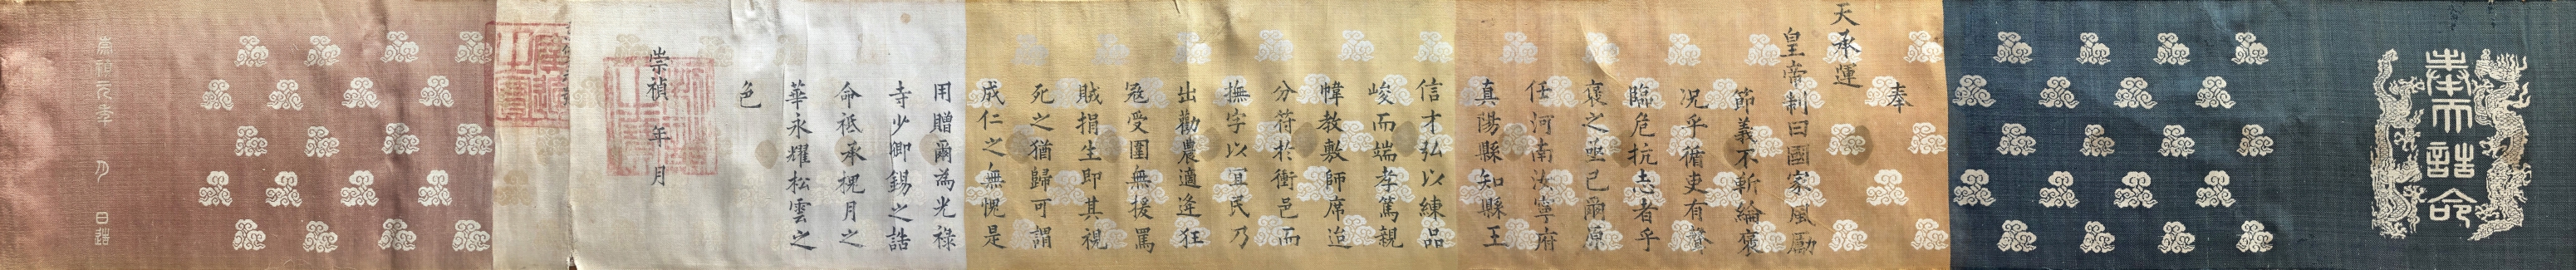 奉天誥命
奉
天承運
皇帝制曰國家風勵
節義不靳綸褒
况乎循吏有聲
臨危抗志者乎
褒之亟已爾原
任河南汝寧府
真陽縣知縣王
信才弘以練品
峻而端孝篤親
幃教敷師席迨
分符於衝邑而
撫字以宜民乃
出勸農適逢狂
寇受圍無援罵
賊捐生即其視
死之猶歸可謂
成仁之無愧是
用贈爾為光祿
寺少卿錫之誥
命祗承祝月之
華永耀松雲之
色
崇禎 年 月
月 日造